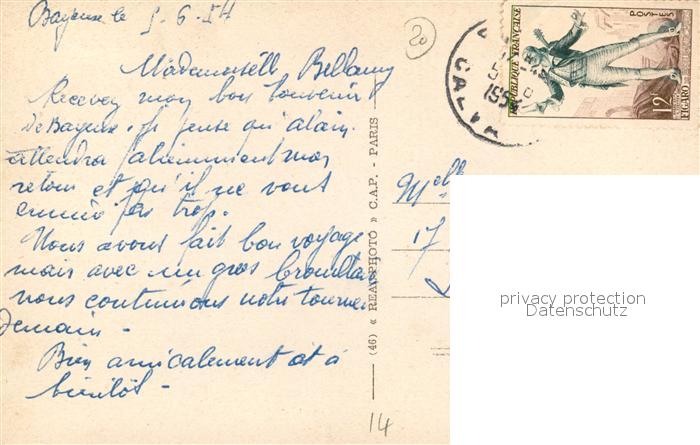 Bayeux le 5-6-54
Mademoiselle Bellamy
Recevez mon bon souvenir
de Bayeux. Je pense qu'alain
attendra patiemment mon
retour et qu'il ne vous
ennuie pas trop.
Nous avons fait bon voyage
mais avec un gros brouillard
nous continuons notre tournée
demain -
Bien amicalement et à
bientôt -
20
(46) « REAL-PHOTO » C.A.P. - PARIS
14
POSTES
REPUBLIQUE FRANÇAISE
12F
FIGARO
CALVA
Melle
17
privacy protection
Datenschutz